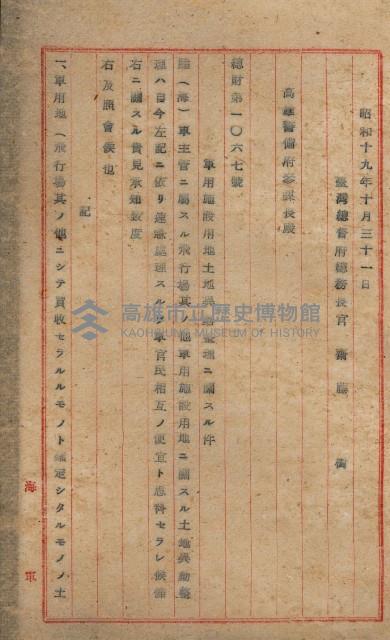 昭和十九年十月三十一日
臺灣總督府總務長官 齋藤 樹
高雄警備府參謀長殿
總財第一〇六七號
軍用施設用地土地異動整理ニ關スル件
陸(海)軍主管ニ屬スル飛行場其ノ他軍用施設用地ニ關スル土地異動整
理ハ自今左記ニ依リ速急處理スルヲ軍官民相互ノ便宜ト思料セラレ候條
右ニ關スル貴見承知致度
右及照會候也
記
一、軍用地(飛行場其ノ他)ニシテ買收セラルルモノト確定シタルモノノ土
海軍
高雄市立歷史博物館
KAOHSIUNG MUSEUM OF HISTORY